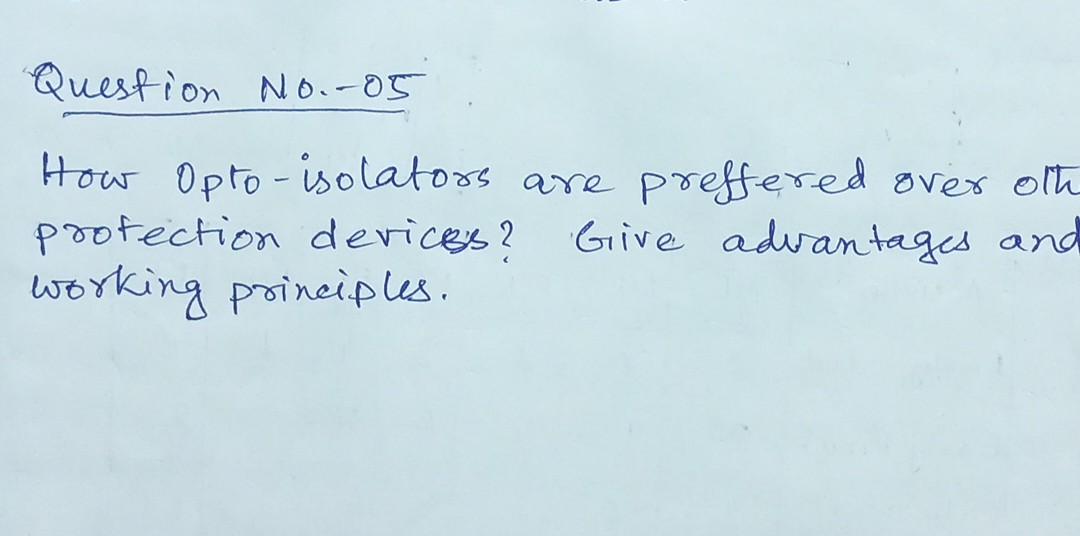 Question No.-05
How Opto-isolators are preffered over oth
protection devices? Give advantages and
working principles.